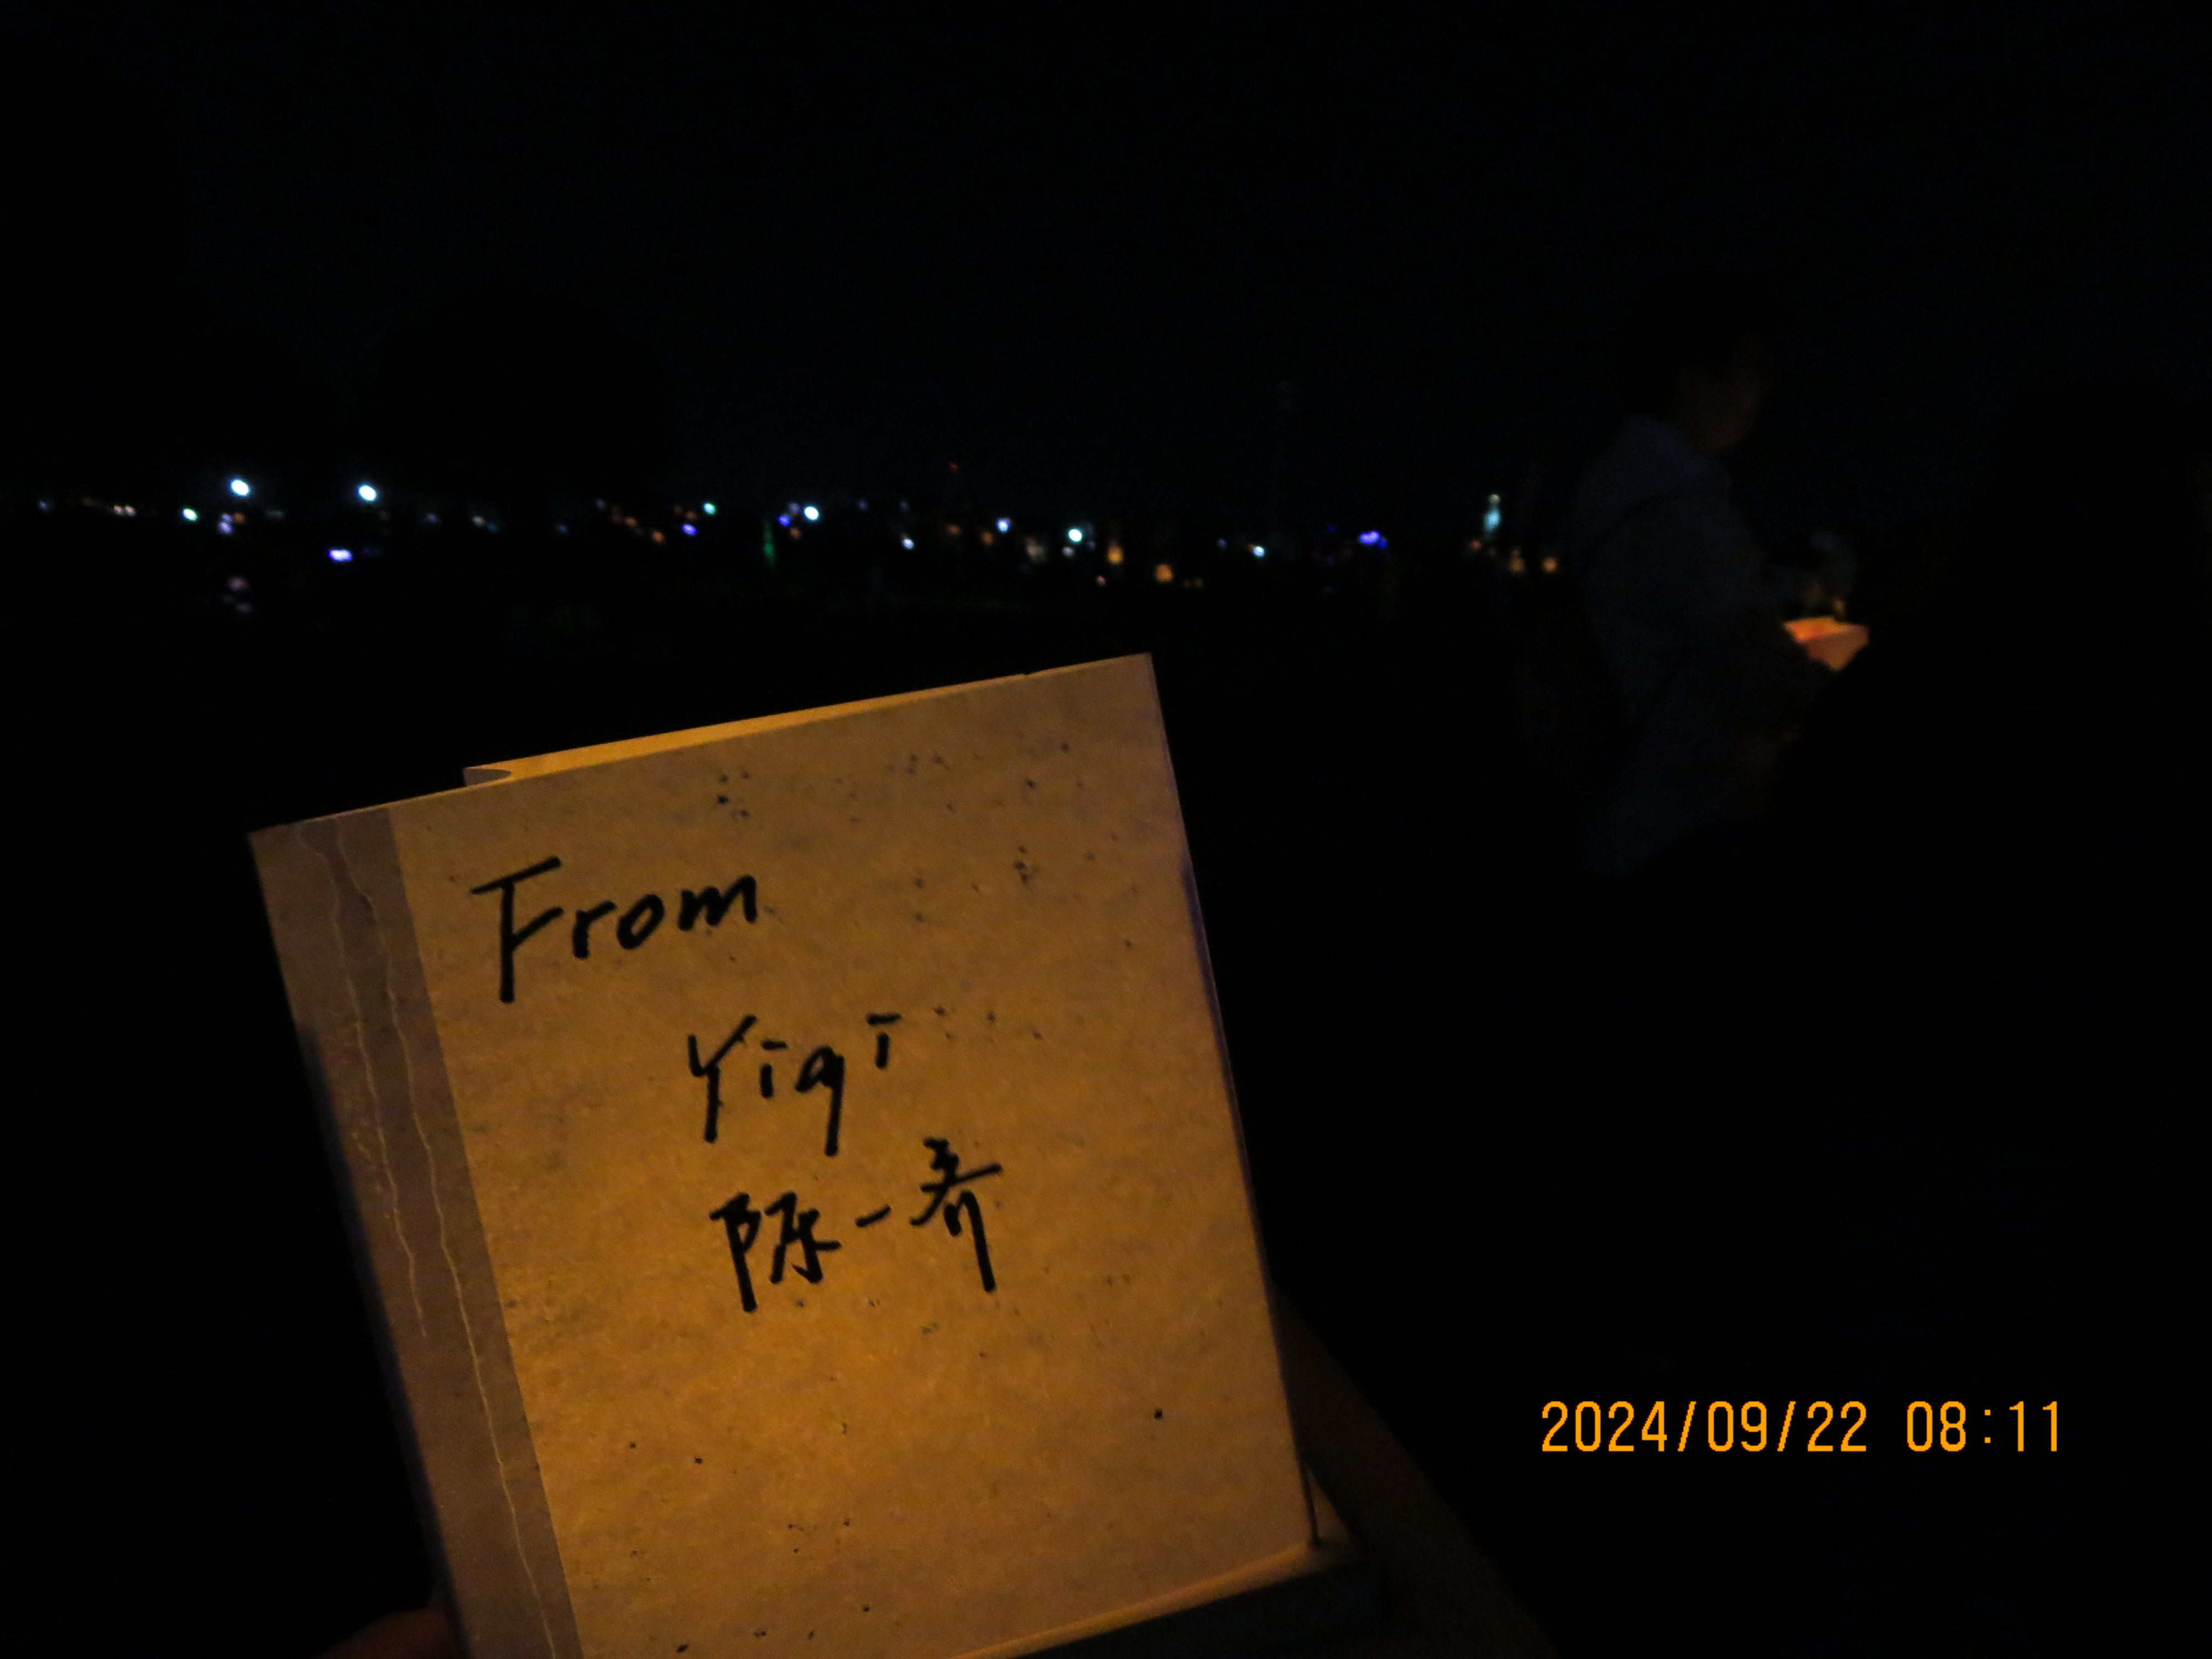 From
Yiqi
陈一齐
2024/09/22 08:11